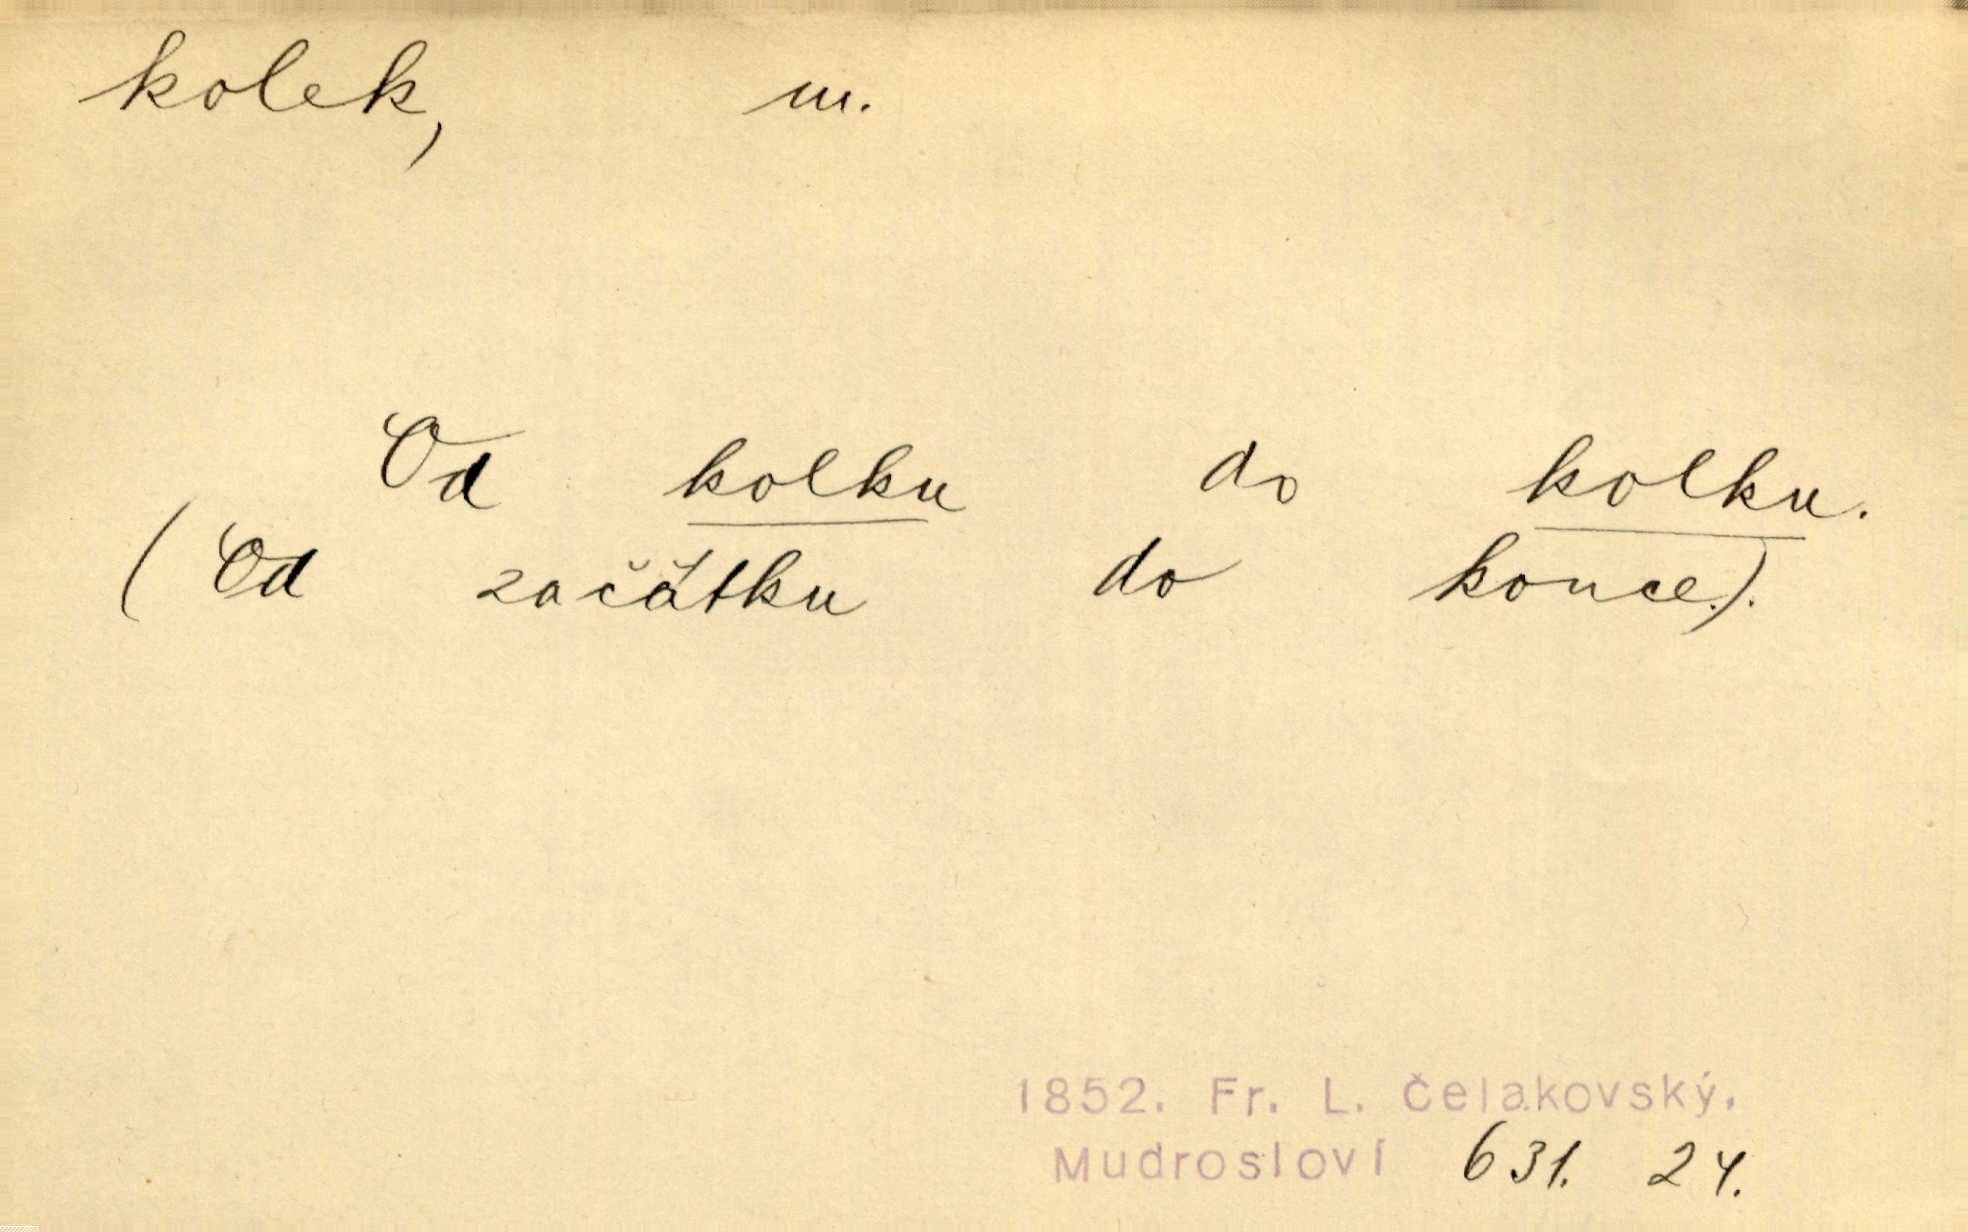 kolek, m.
Od kolku do kolku.
(Od začátku do konce.).
1852. Fr. L. Čelakovský,
Mudrosloví 631. 24.